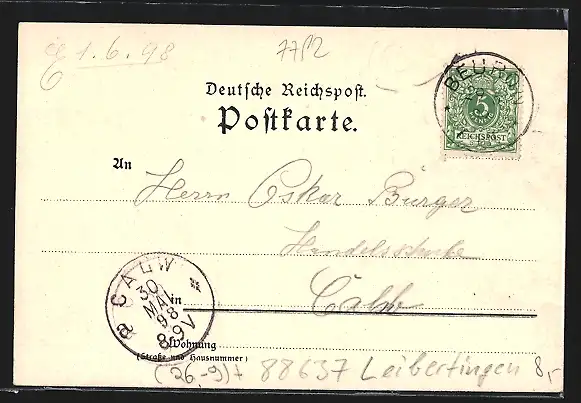 1.6.98
Deutsche Reichspost.
Postkarte.
BEUR
5
REICHSPOST
An
Herrn Oskar Bürger
Calw
CALW
30
MAI
98
8-9V
in
Wohnung
(Straße und Hausnummer)
(26,-9)+ 88637 Leibertingen 8,-